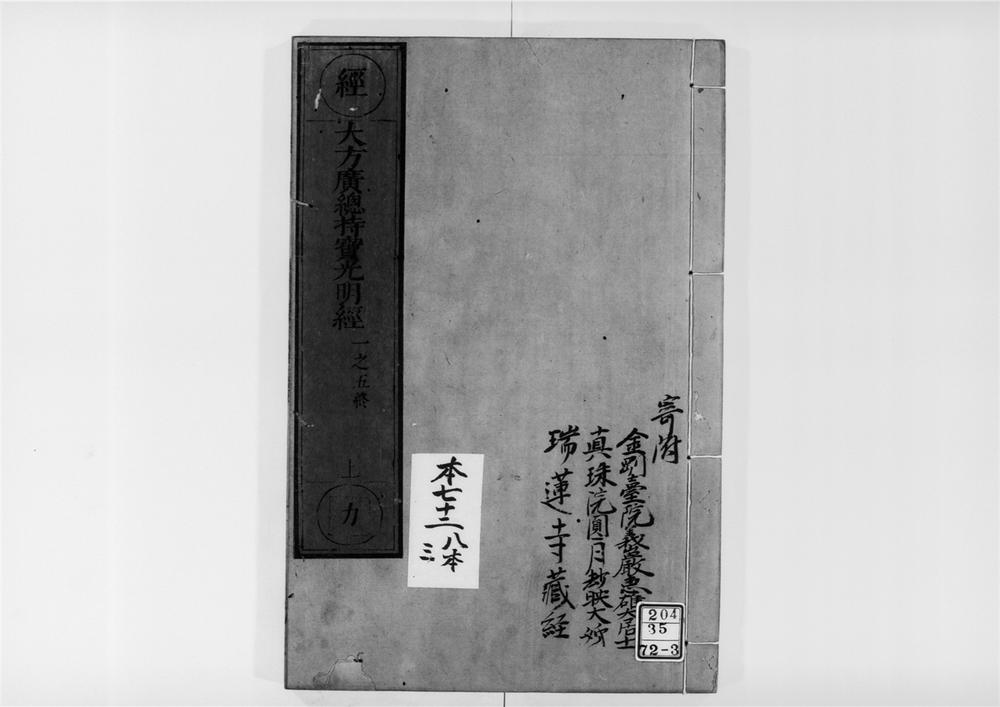 寄附
金剛臺院義嚴惠雄大居士
真珠院圓月妙映大姉
瑞蓮寺藏経
本七十二 八本
三
經
大方廣總持寳光明經
一之五終
上
力
204
35
72-3